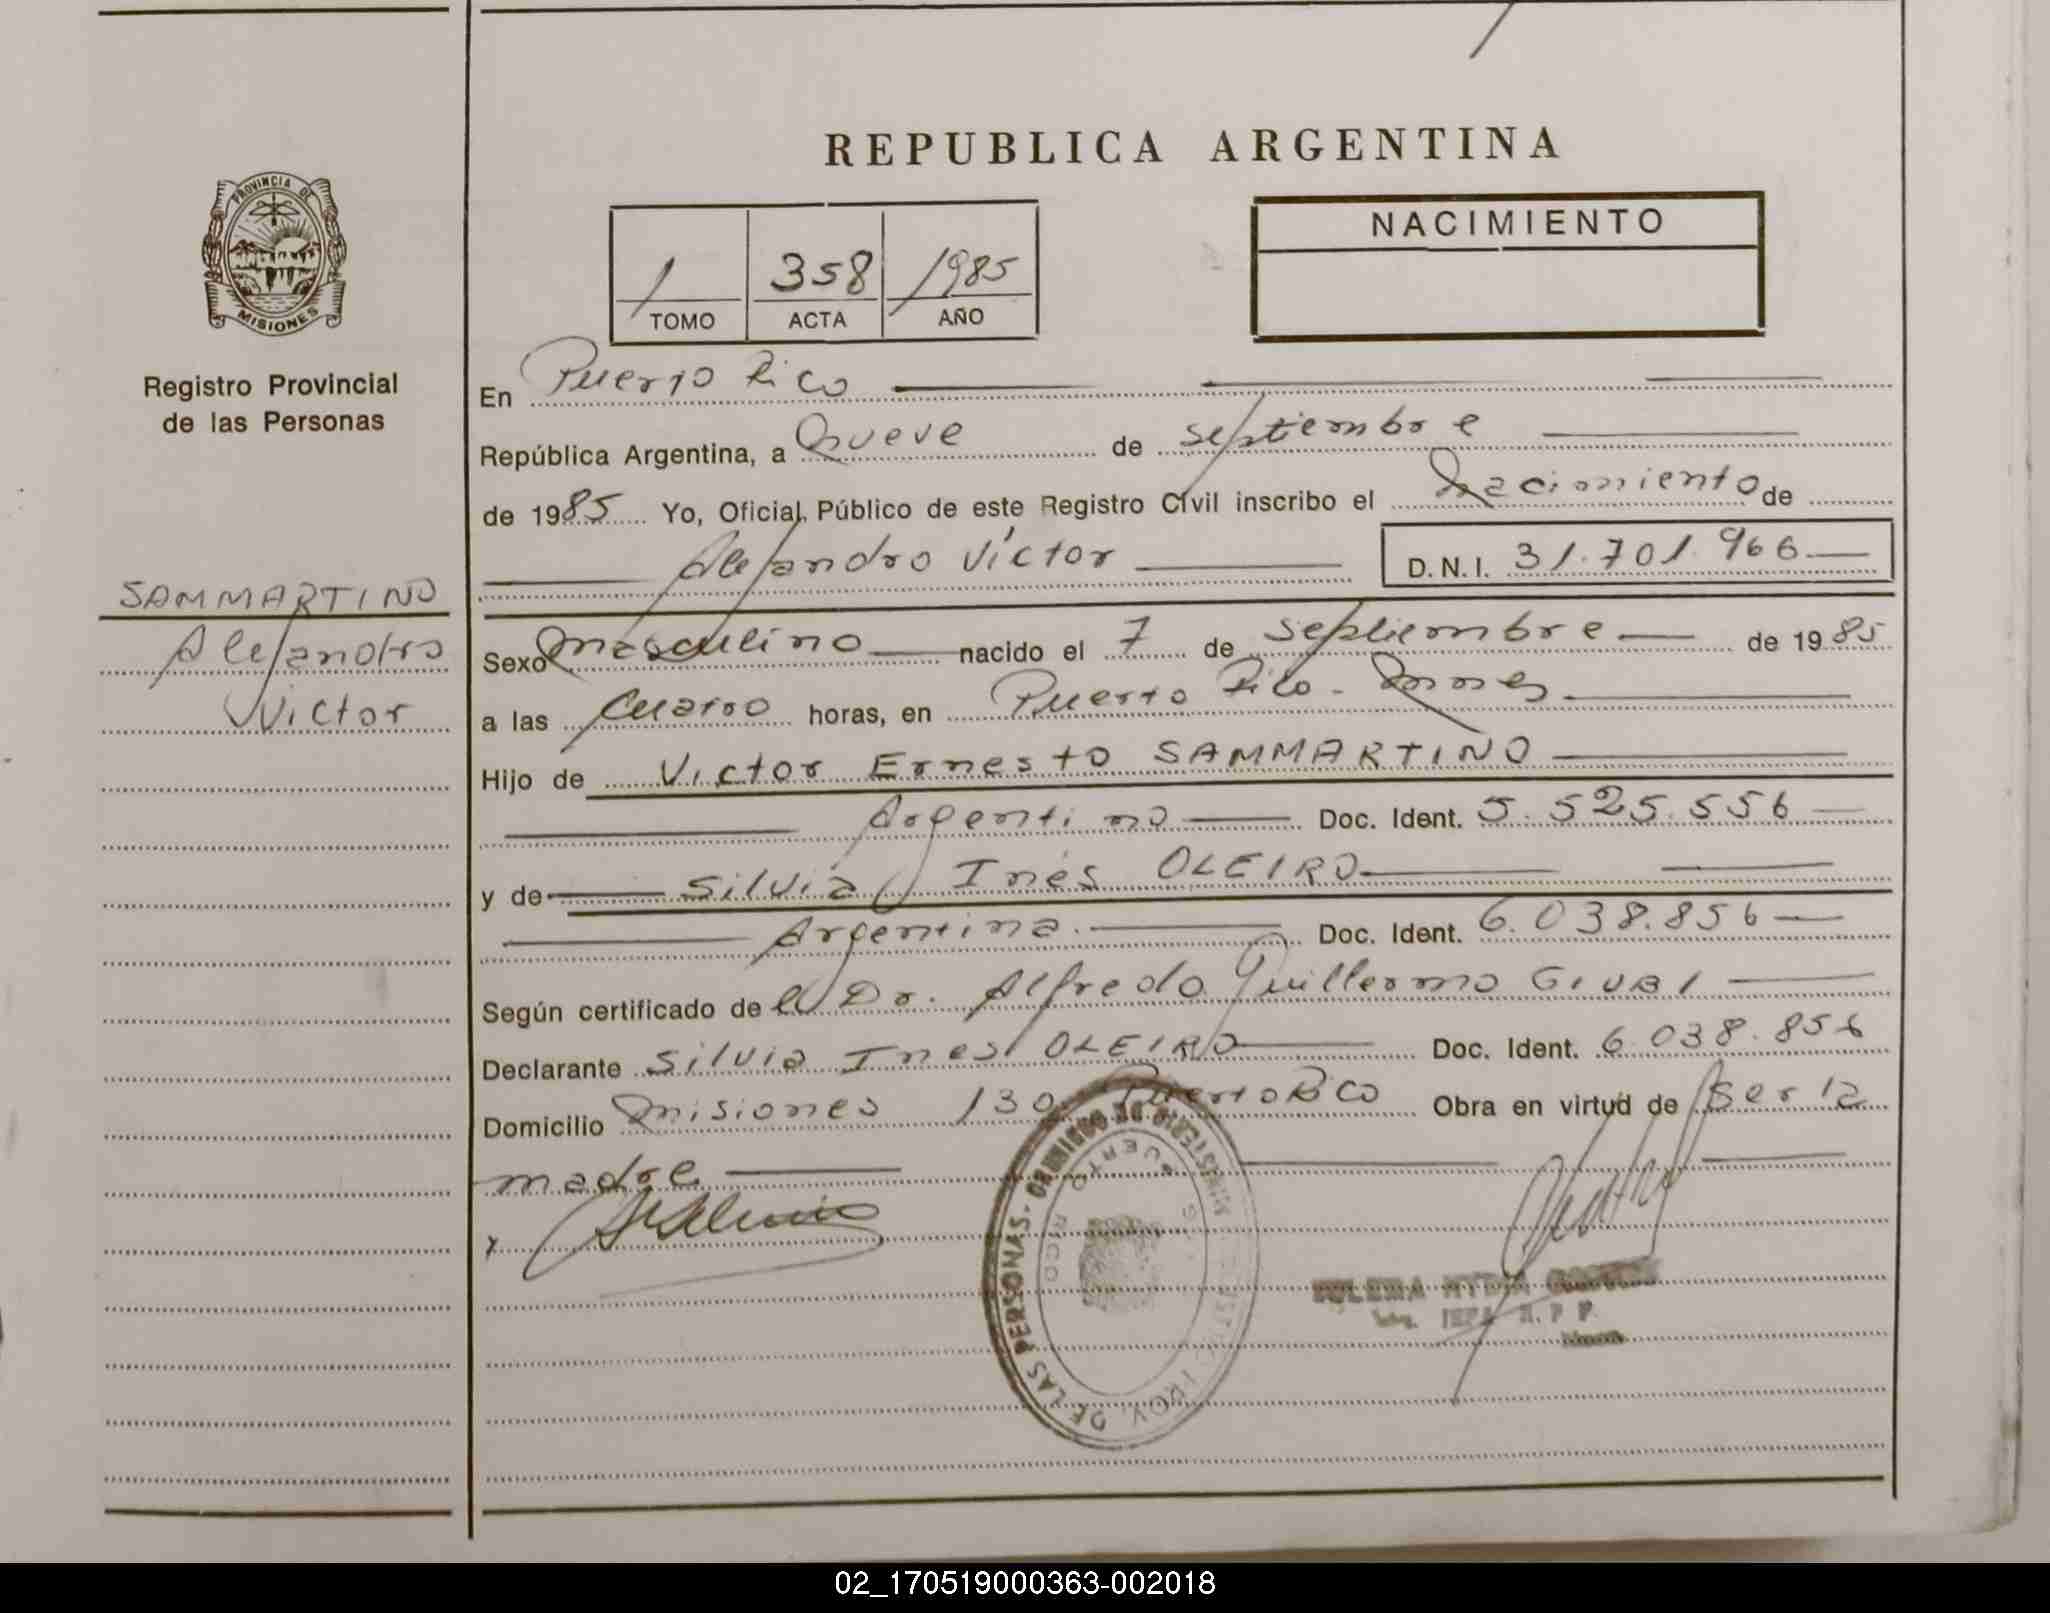 REPUBLICA ARGENTINA
PROVINCIA DE
MISIONES
Registro Provincial
de las Personas
1 358 1985
TOMO ACTA AÑO
NACIMIENTO
En Puerto Rico
República Argentina, a Nueve de septiembre
de 1985 Yo, Oficial Público de este Registro Civil inscribo el Nacimiento de
Alejandro Víctor D.N.I. 31.701.966
SAMMARTINO
Alejandro
Victor
Sexo masculino nacido el 7 de septiembre de 1985
a las cuatro horas, en Puerto Rico - Mnes
Hijo de Victor Ernesto SAMMARTINO
Argentino Doc. Ident. 5.525.556
y de Silvia Inés OLEIRO
Argentina. Doc. Ident. 6.038.856
Según certificado de el Dr. Alfredo Guillermo GIUBI
Declarante Silvia Ines OLEIRO Doc. Ident. 6.038.856
Domicilio Misiones 130 Puerto Rico Obra en virtud de ser la
madre
PROV. DE LAS PERSONAS - MINISTERIO DE GOBIERNO
PUERTO RICO
R. P. P.
02_170519000363-002018